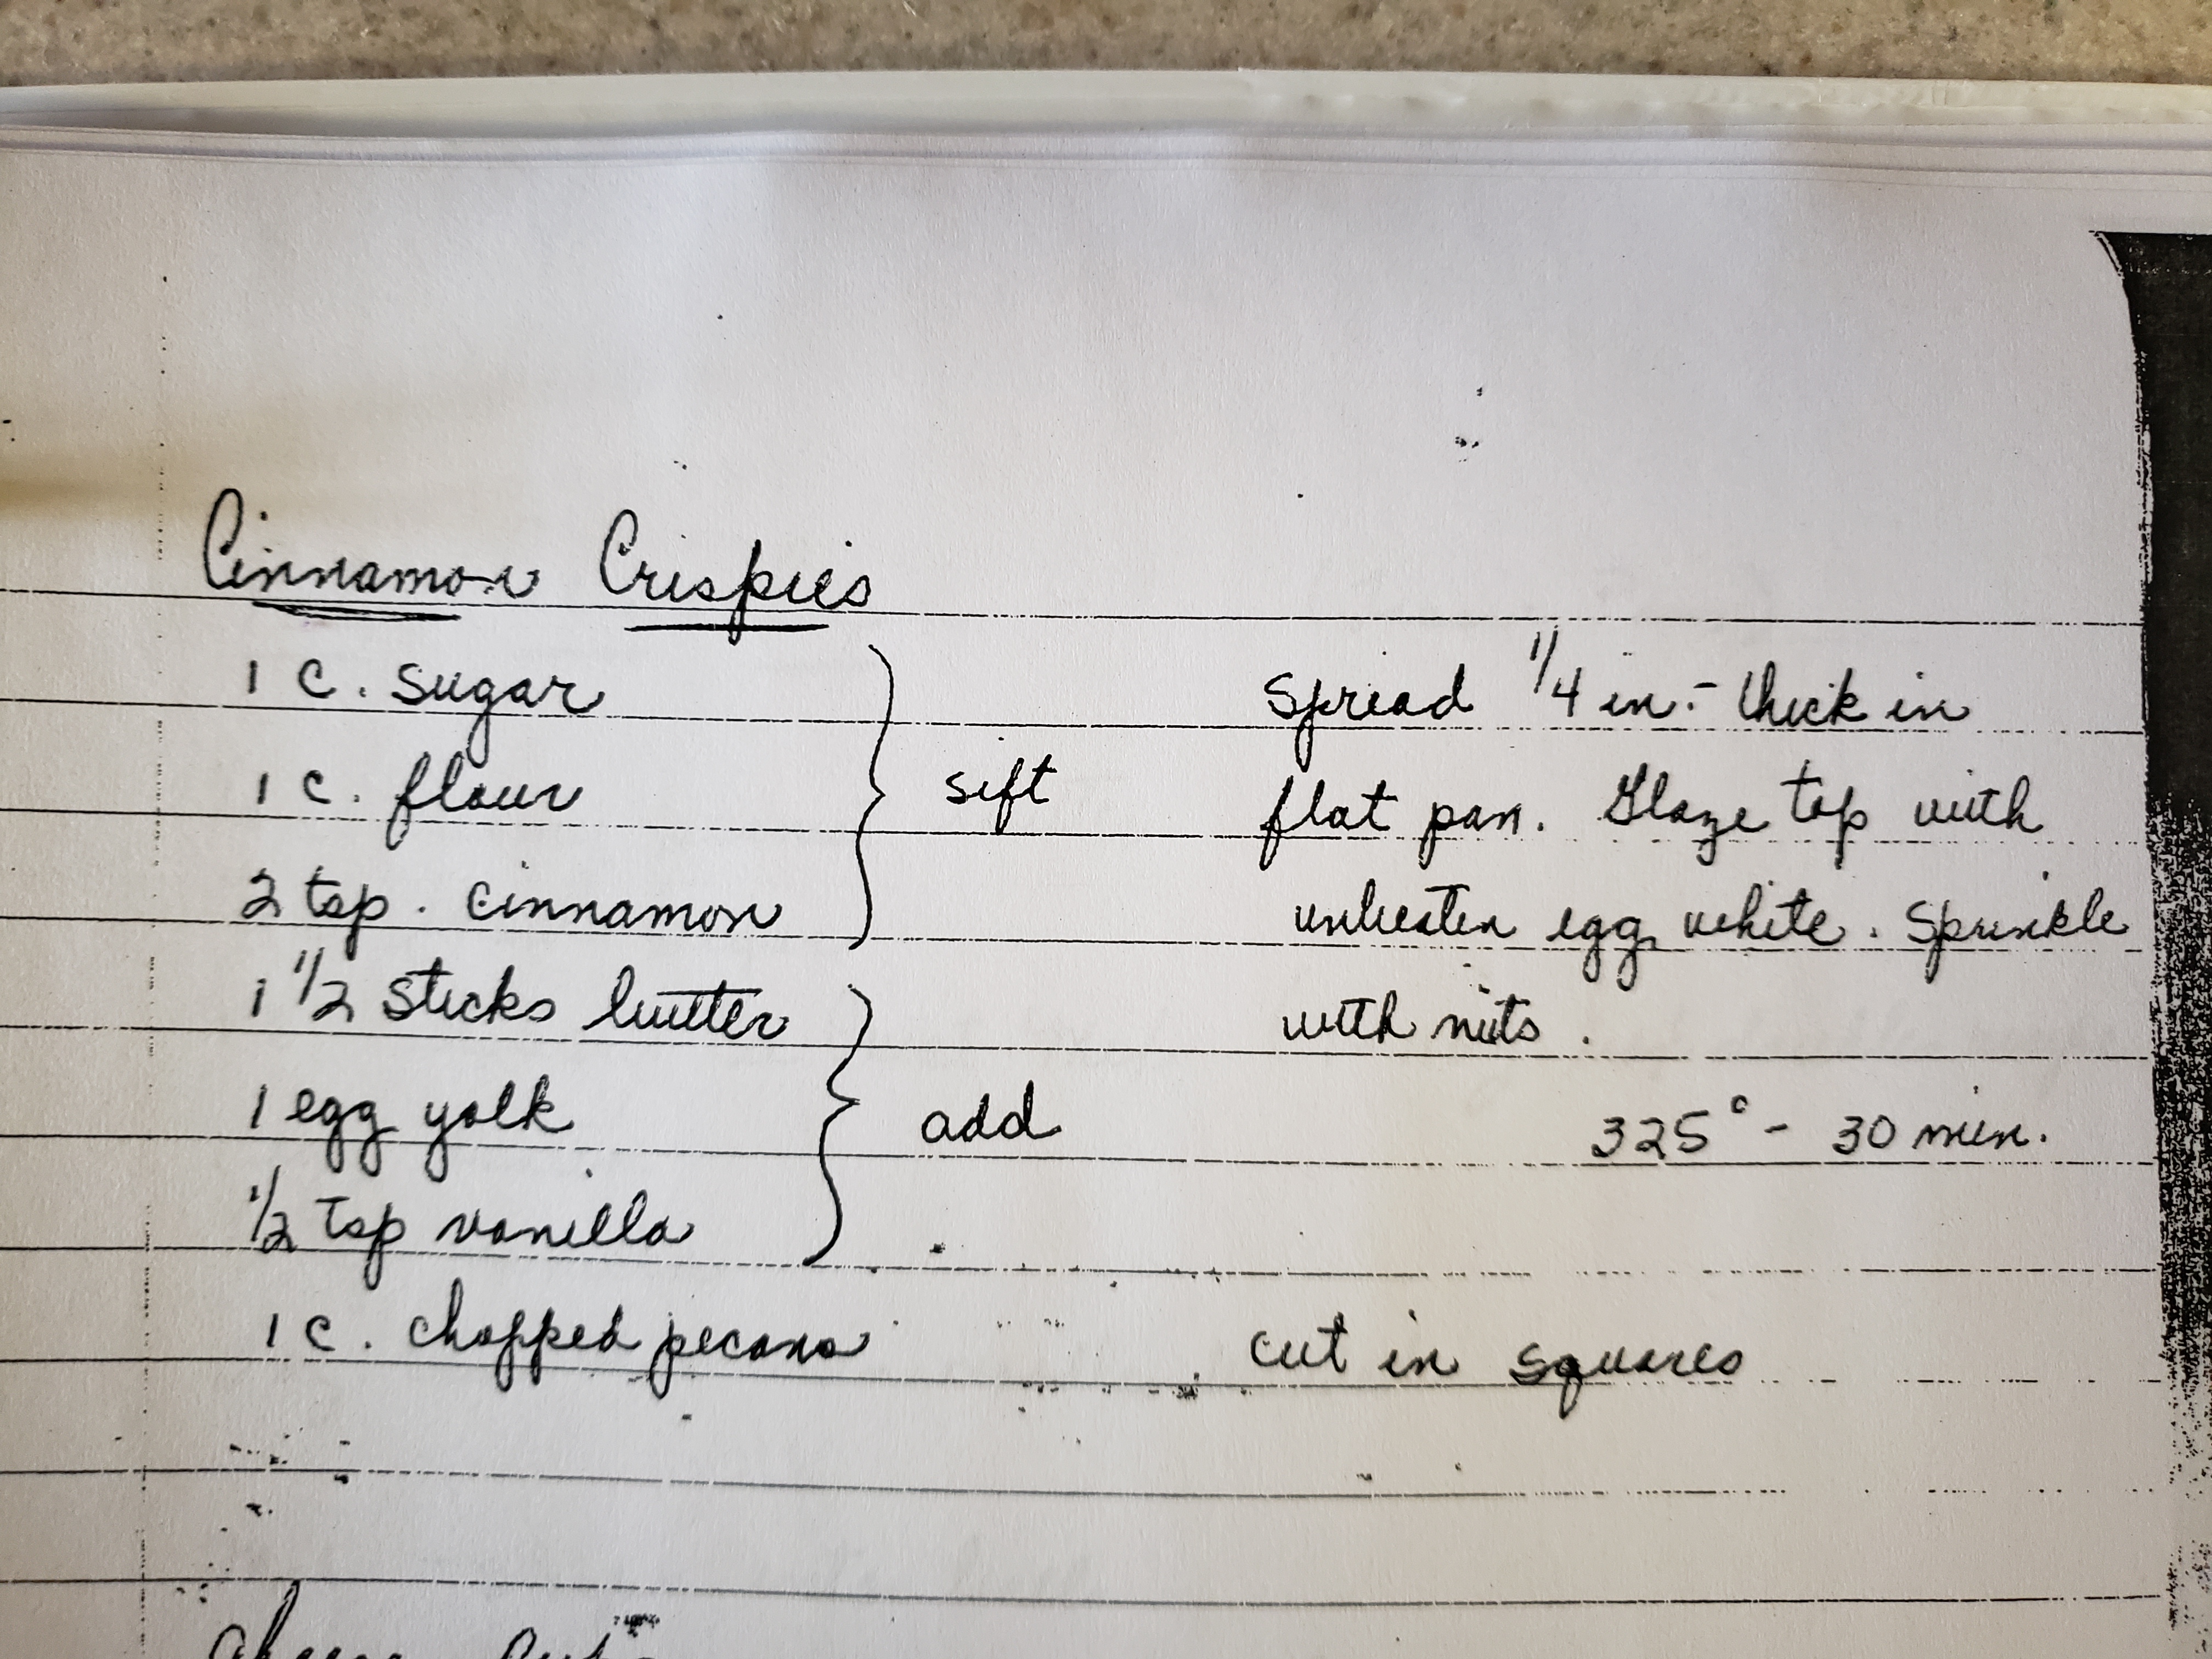 Cinnamon Crispies
1 c. sugar
1 c. flour
2 tsp. cinnamon
sift
1 1/2 sticks butter
1 egg yolk
1/2 tsp vanilla
add
1 c. chopped pecans
Spread 1/4 in.- thick in
flat pan. Glaze top with
unbeaten egg white. Sprinkle
with nuts.
325° - 30 min.
cut in squares
Cheese